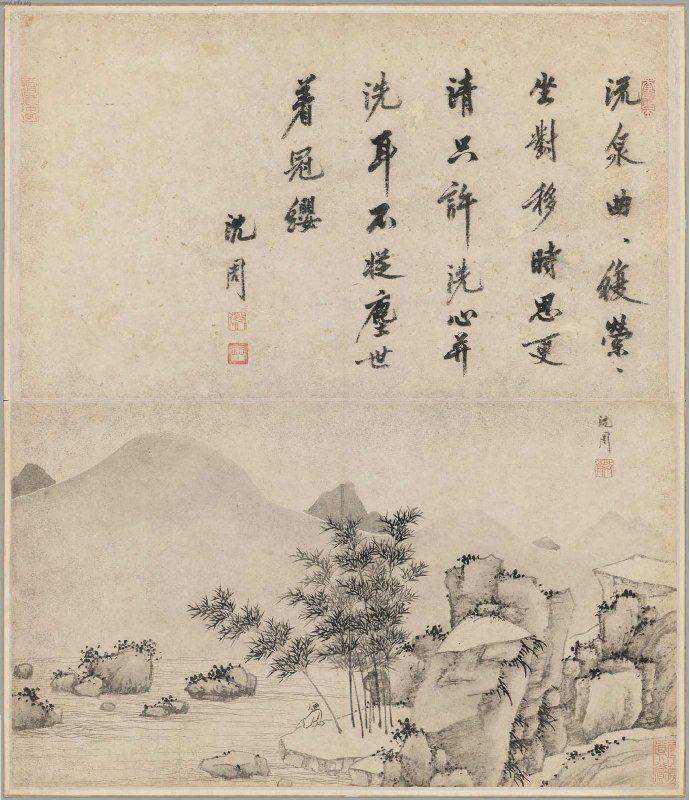 流泉曲、復縈、
坐對移時思更
清只許洗心并
洗耳不從塵世
着冠纓
沈周
沈周